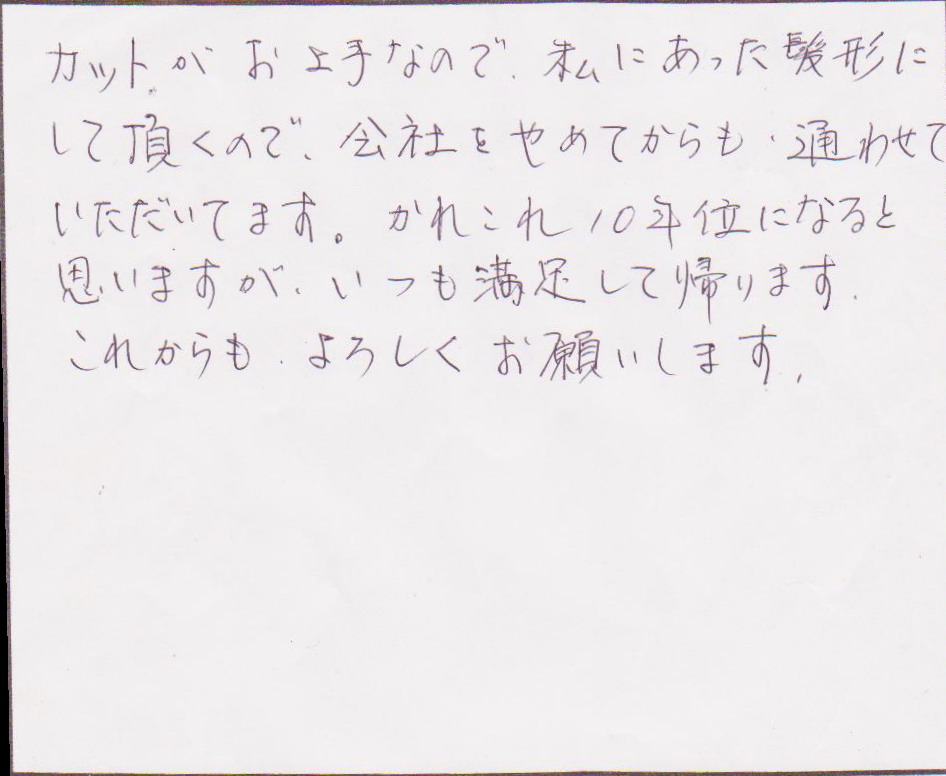 カットがお上手なので、私にあった髪形に
して頂くので、会社をやめてからも、通わせて
いただいてます。かれこれ10年位になると
思いますが、いつも満足して帰ります。
これからも、よろしくお願いします。